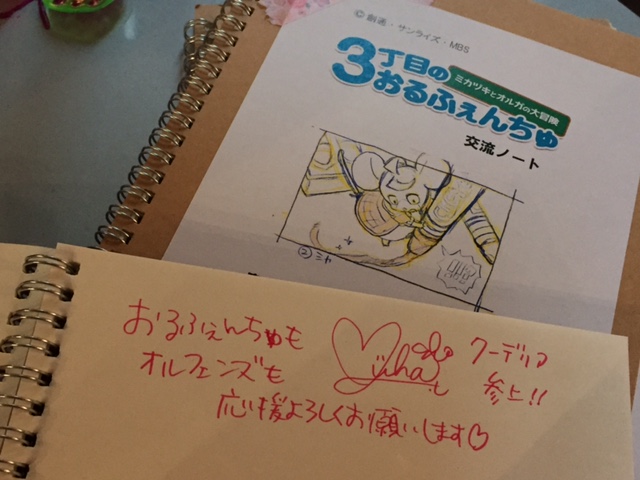 ©創通・サンライズ・MBS
3丁目の
ミカヅキとオルガの大冒険
おるふぇんちゅ
交流ノート
②ミカ
おるふぇんちゅも
オルフェンズも
応援よろしくお願いします♡
クーデリア
参上!!